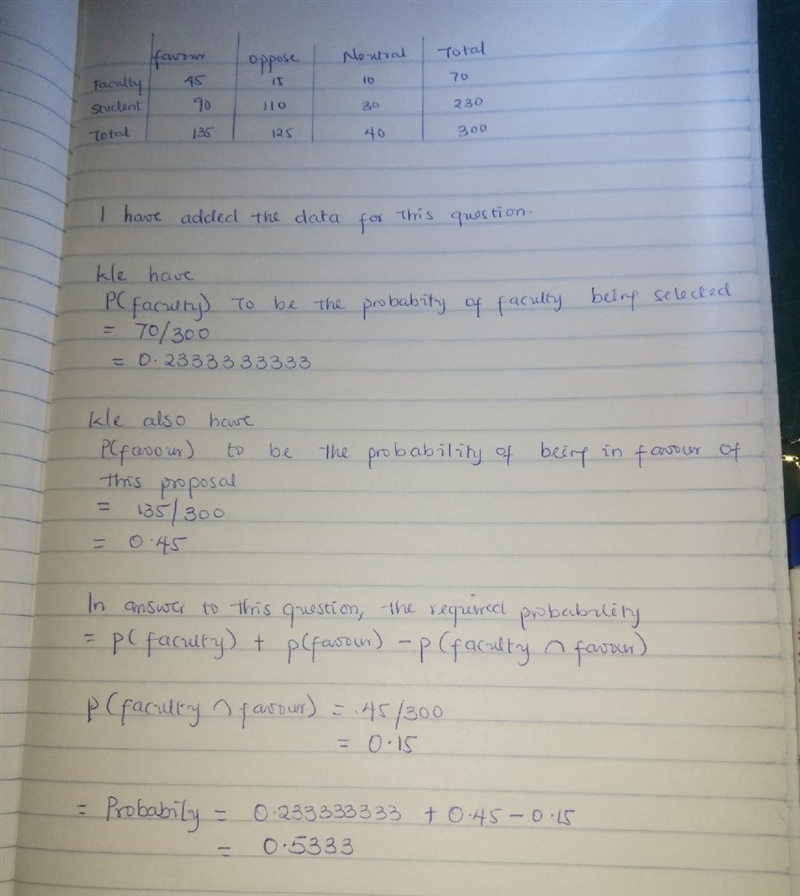 favour oppose Neutral Total
Faculty 45 15 10 70
Student 90 110 30 230
Total 135 125 40 300
I have added the data for this question.
We have
P(faculty) to be the probabity of faculty being selected
= 70/300
= 0.2333333333
We also have
P(favour) to be the probability of being in favour of
this proposal
= 135/300
= 0.45
In answer to this question, the required probability
= p(faculty) + p(favour) - p(faculty ∩ favour)
p(faculty ∩ favour) = 45/300
= 0.15
= Probabily = 0.233333333 + 0.45 - 0.15
= 0.5333